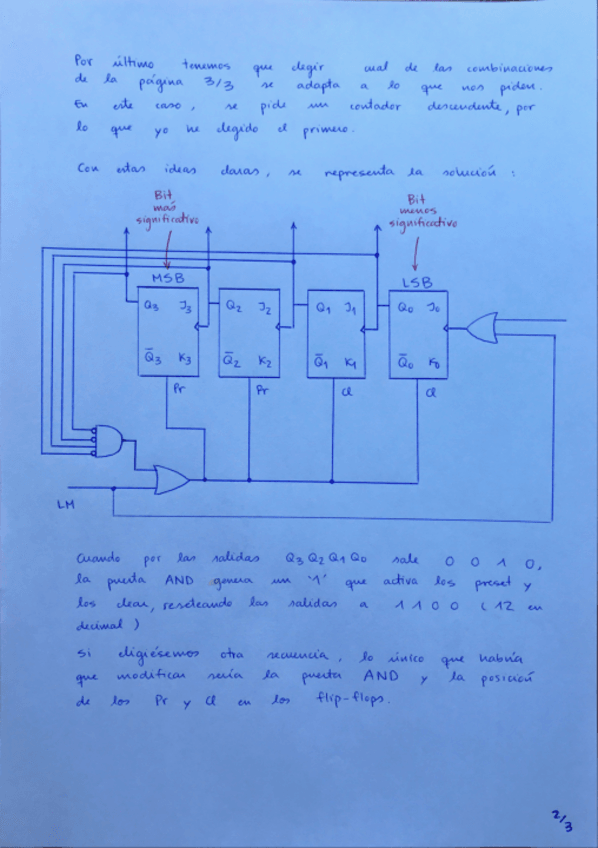 Por último tenemos que elegir cual de las combinaciones
de la página 3/3 se adapta a lo que nos piden.
En este caso, se pide un contador descendente, por
lo que yo he elegido el primero.
Con estas ideas claras, se representa la solución:
Bit más significativo
Bit menos significativo
MSB
LSB
Q3 J3 Q2 J2 Q1 J1 Q0 J0
Q̅3 K3 Q̅2 K2 Q̅1 K1 Q̅0 K0
Pr Pr Cl Cl
LM
Cuando por las salidas Q3 Q2 Q1 Q0 sale 0 0 1 0,
la puerta AND genera un '1' que activa los preset y
los clear, reseteando las salidas a 1 1 0 0 (12 en
decimal)
Si eligiésemos otra secuencia, lo único que habría
que modificar sería la puerta AND y la posición
de los Pr y Cl en los flip-flops.
2/3